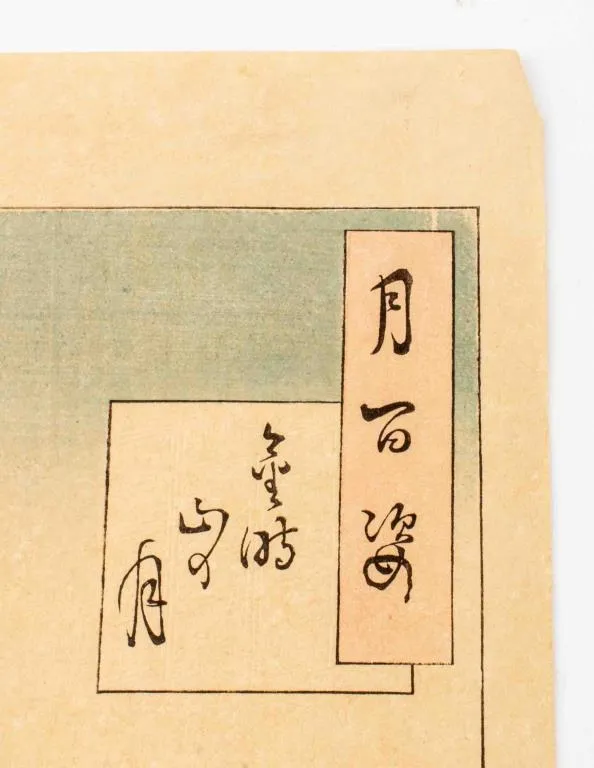 月百姿
金時
山の
月